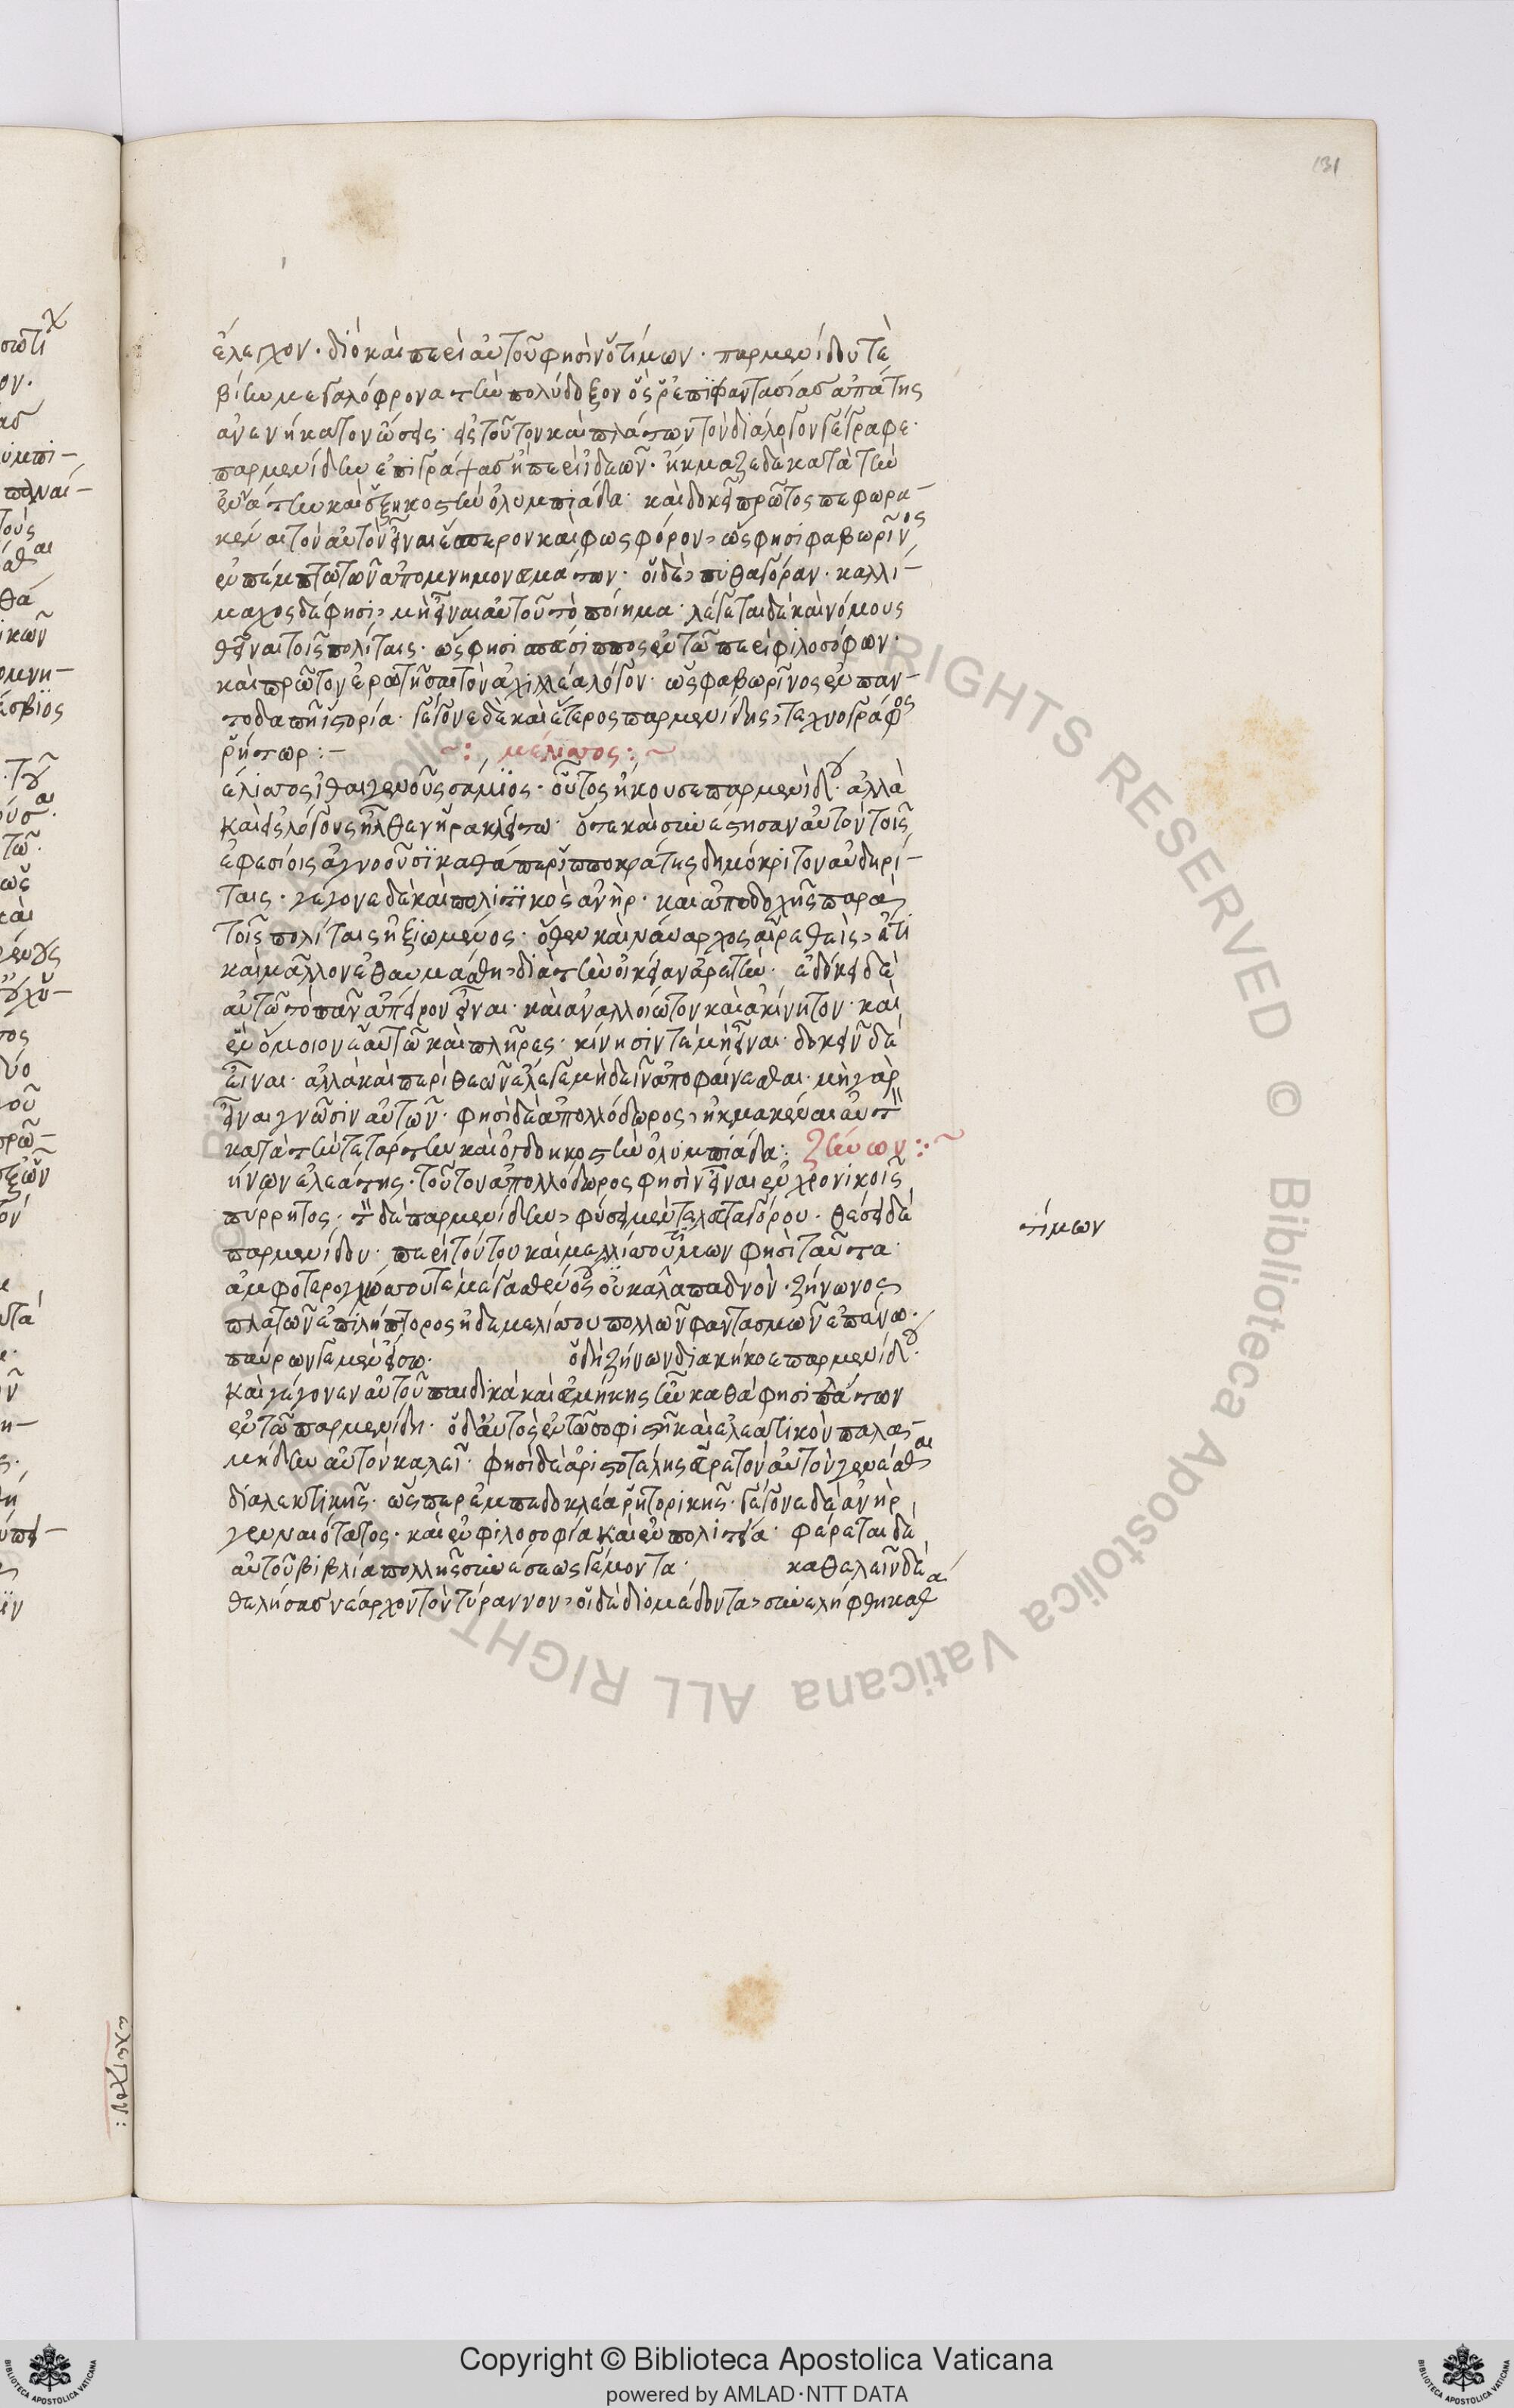 131
ἔλεγχον· διὸ καὶ περὶ αὐτοῦ φησὶν ὁ τίμων· παρμενίδου τὲ
βίην μεγαλόφρονα τὴν πολύδοξον ὅς ῥ' ἐπὶ φαντασίας ἀπάτης
ἀνενήκατο νώσεις· εἰς τοῦτον καὶ πλάτων τὸν διάλογον γέγραφε·
παρμενίδην ἐπιγράψας ἢ περὶ ἰδεῶν· ἤκμαζε δὲ κατὰ τὴν
ἐνάτην καὶ ἑξηκοστὴν ὀλυμπιάδα· καὶ δοκεῖ πρῶτος πεφωρα-
κέναι τὸν αὐτὸν εἶναι ἕσπερον καὶ φωσφόρον, ὥς φησι φαβωρῖνος
ἐν πέμπτω τῶν ἀπομνημονευμάτων· οἱ δὲ, πυθαγόραν· καλλί-
μαχος δέ φησι, μὴ εἶναι αὐτοῦ τὸ ποίημα· λέγεται δὲ καὶ νόμους
θεῖναι τοῖς πολίταις· ὥς φησι σπεύσιππος ἐν τῶ περὶ φιλοσόφων·
καὶ πρῶτον ἐρωτῆσαι τὸν ἀχιλλέα λόγον· ὡς φαβωρῖνος ἐν παν-
τοδαπῇ ἱστορία· γέγονε δὲ καὶ ἕτερος παρμενίδης, τεχνογράφος
ῥήτωρ :- ~: μέλισσος :~
έλισσος ἰθαιγενοῦς σάμιος· οὗτος ἤκουσε παρμενίδου· ἀλλὰ
καὶ εἰς λόγους ἦλθεν ἡρακλείτω· ὅτε καὶ συνέστησαν αὐτὸν τοῖς
ἐφεσίοις ἀγνοοῦσι καθάπερ ἱπποκράτης δημόκριτον αὐδηρί-
ταις· γέγονε δὲ καὶ πολιτικὸς ἀνὴρ· καὶ ἀποδοχῆς παρὰ
τοῖς πολίταις ἠξιωμένος· ὅθεν καὶ ναύαρχος αἱρεθεὶς, ἔτι
καὶ μᾶλλον ἐθαυμάσθη, διὰ τὴν οἰκείαν ἀρετὴν· ἐδόκει δὲ
αὐτῶ τὸ πᾶν ἄπειρον εἶναι· καὶ ἀναλλοίωτον καὶ ἀκίνητον· καὶ
ἓν ὅμοιον ἑαυτῶ καὶ πλῆρες· κίνησίν τε μὴ εἶναι· δοκεῖν δὲ
εἶναι· ἀλλὰ καὶ περὶ θεῶν ἔλεγε μὴ δεῖν ἀποφαίνεσθαι· μὴ γὰρ
εἶναι γνῶσιν αὐτῶν· φησὶ δὲ ἀπολλόδωρος, ἠκμακέναι αὐτὸν
κατὰ τὴν τετάρτην καὶ ὀγδοηκοστὴν ὀλυμπιάδα: ζήνων :~
ήνων ἐλεάτης· τοῦτον ἀπολλόδωρος φησὶν εἶναι ἐν χρονικοῖς
πύρρητος· τὸν δὲ παρμενίδην, φύσει μὲν τελευταγόρου· θέσει δὲ
παρμενίδου· περὶ τούτου καὶ μελίσσου τίμων φησὶ ταῦτα·
τίμων
ἀμφοτερογλώσσου τε μέγα σθένος οὐκ ἀλαπαδνὸν· ζήνωνος
πλάτων ἐπιλήπτορος ἠδὲ μελίσσου πολλῶν φαντασμῶν ἐπάνω·
παύρων γε μὲν εἴσω· ὁ δὴ ζήνων διακήκοε παρμενίδου·
καὶ γέγονεν αὐτοῦ παιδικὰ καὶ εὐμήκης ἦν καθά φησι πλάτων
ἐν τῶ παρμενίδη· ὁ δ' αὐτὸς ἐν τῶ σοφιστῇ καὶ ἐλεατικὸν παλα-
μήδην αὐτὸν καλεῖ· φησὶ δὲ ἀριστοτέλης εὑρετὸν αὐτὸν γενέσθαι
διαλεκτικῆς· ὥσπερ ἐμπεδοκλέα ῥητορικῆς· γέγονε δὲ ἀνὴρ
γενναιότατος· καὶ ἐν φιλοσοφία καὶ ἐν πολιτεία· φέρεται δὲ
αὐτοῦ βιβλία πολλῆς συνέσεως γέμοντα· καθελεῖν δὲ
θελήσας νέαρχον τὸν τύραννον, οἱ δὲ διομέδοντα, συνελήφθη καθά
ἔλεγχον: